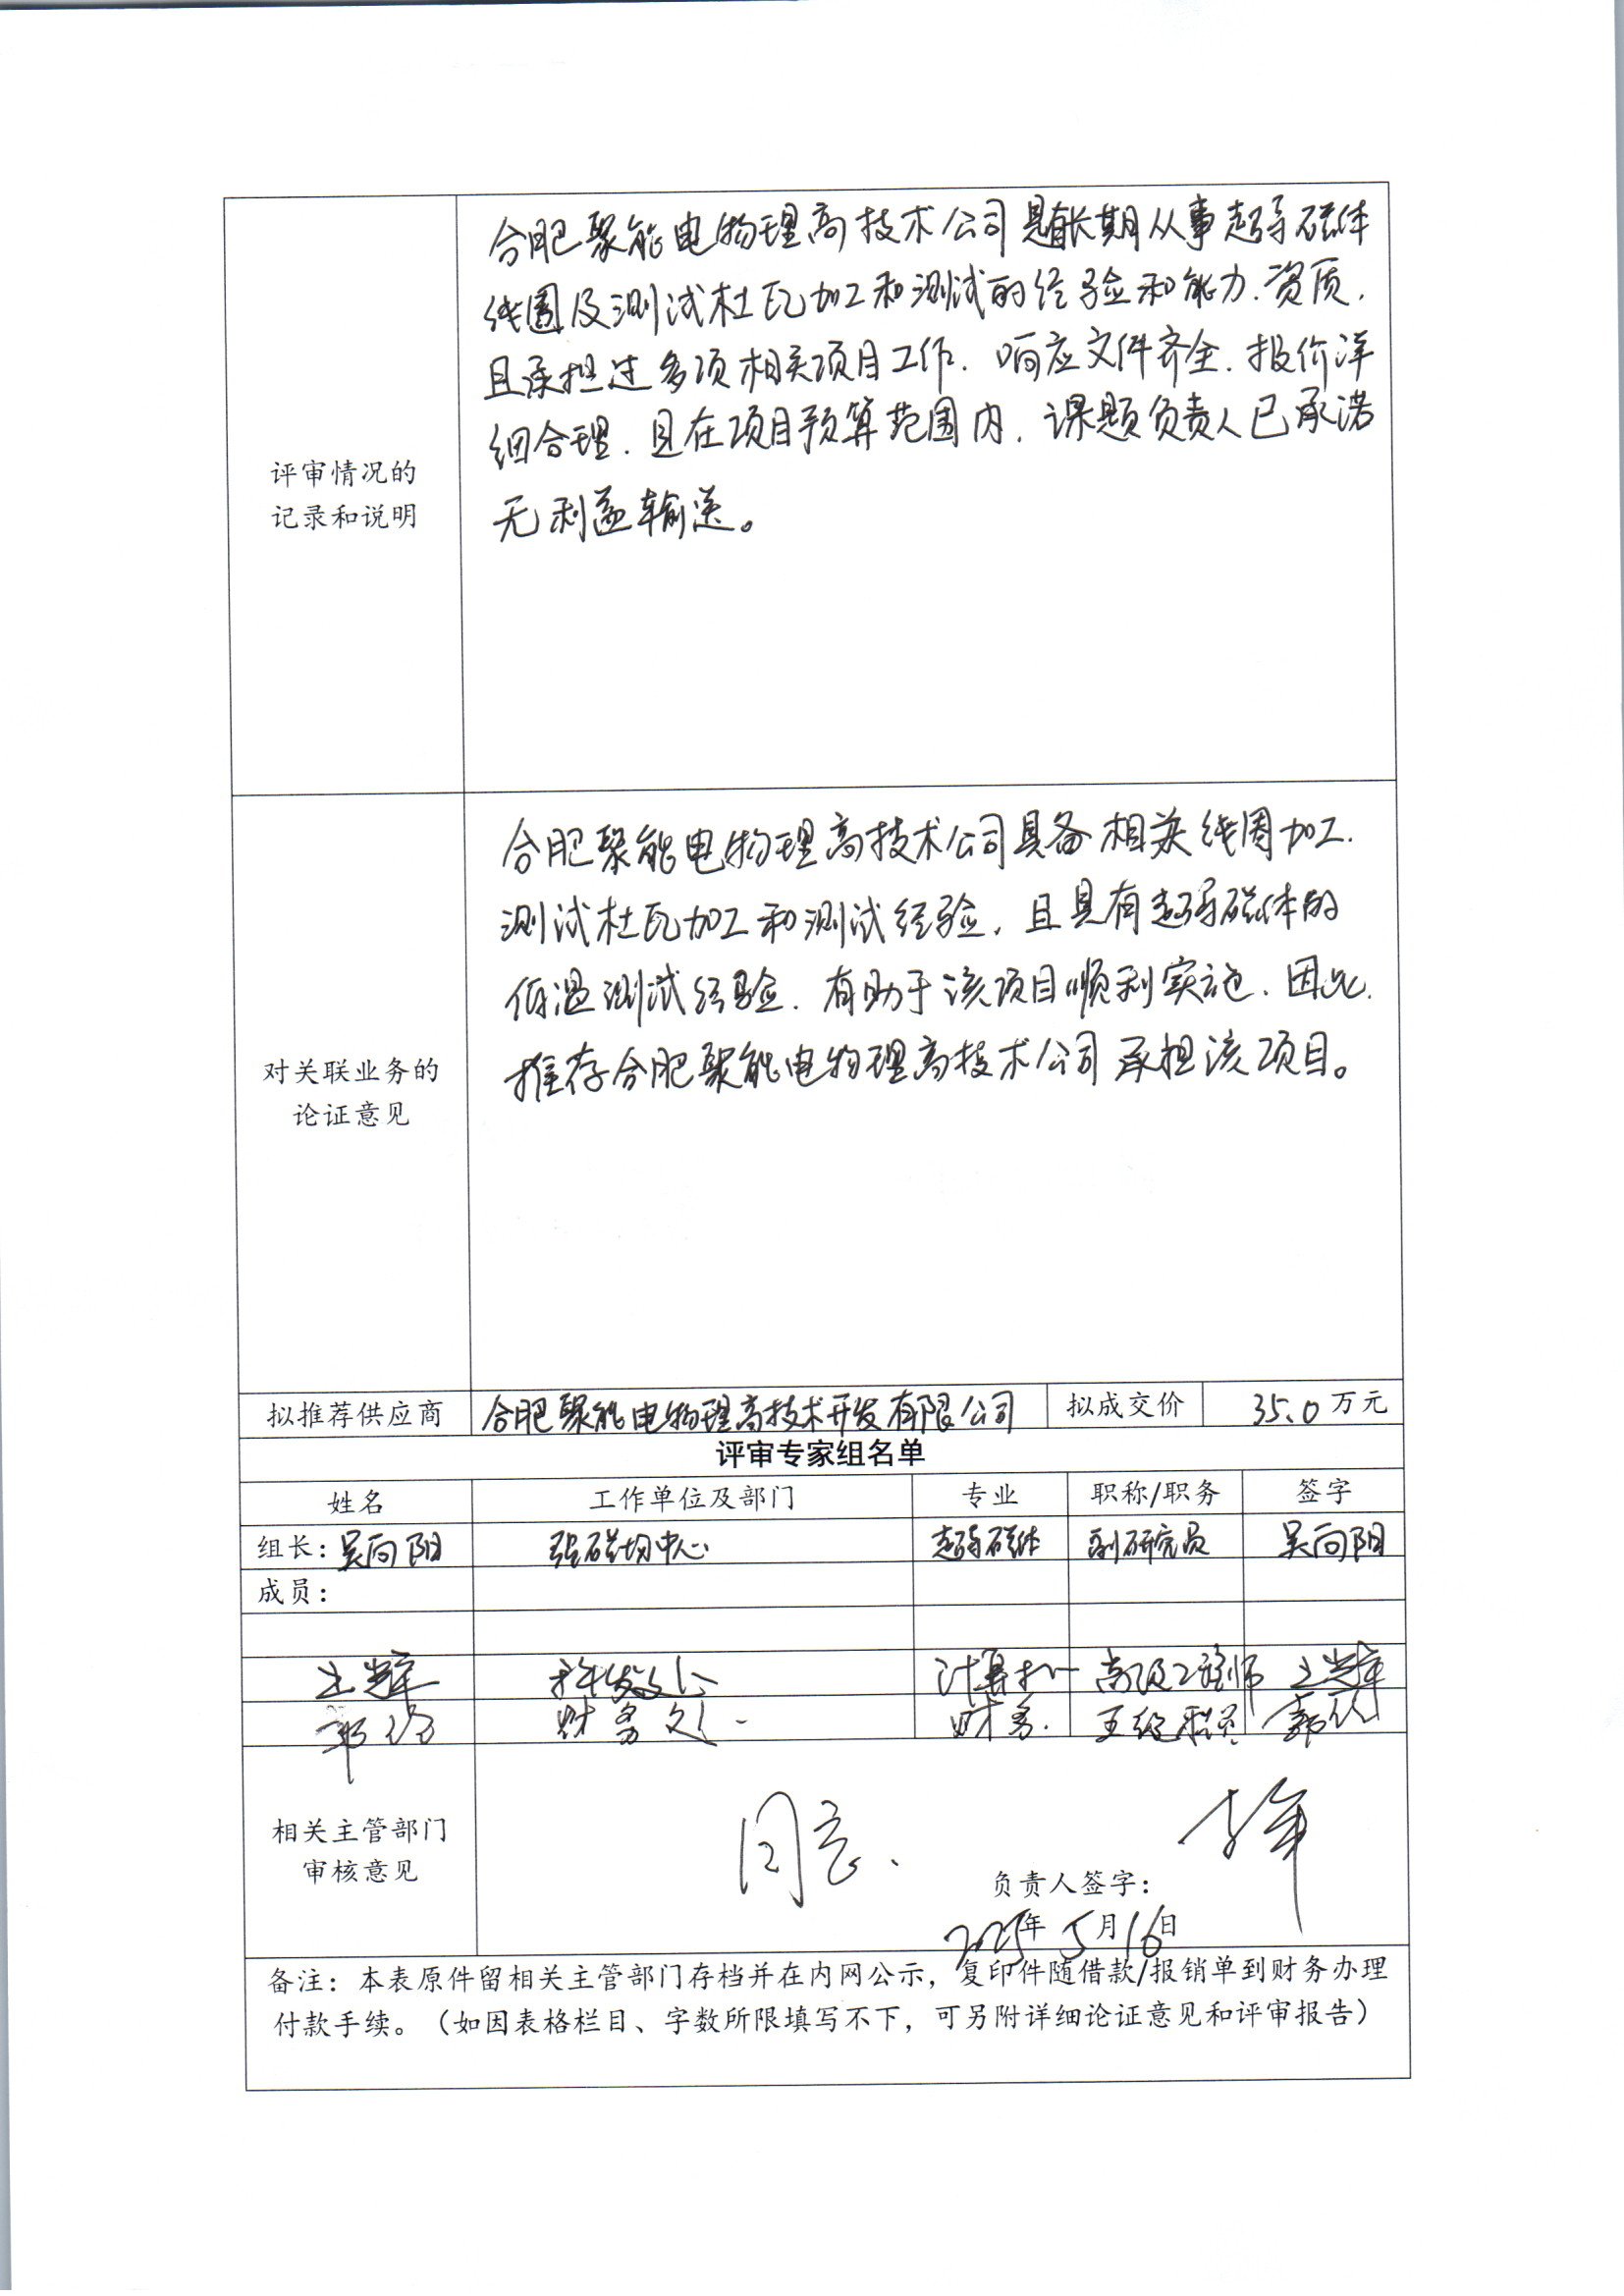 评审情况的
记录和说明
合肥聚能电物理高技术公司具有长期从事超导磁体
线圈及测试杜瓦加工和测试的经验和能力、资质,
且承担过多项相关项目工作. 响应文件齐全. 报价详
细合理. 且在项目预算范围内. 课题负责人已承诺
无利益输送。
对关联业务的
论证意见
合肥聚能电物理高技术公司具备相关线圈加工.
测试杜瓦加工和测试经验. 且具有超导磁体的
低温测试经验. 有助于该项目顺利实施. 因此.
推荐合肥聚能电物理高技术公司承担该项目。
拟推荐供应商 合肥聚能电物理高技术开发有限公司 拟成交价 35.0 万元
评审专家组名单
姓名 工作单位及部门 专业 职称/职务 签字
组长: 吴向阳 强磁场中心 超导磁体 副研究员 吴向阳
成员:
科发处 计算机 高级工程师
财务处 财务. 职员
同意.
相关主管部门
审核意见
负责人签字:
2025年5月16日
备注: 本表原件留相关主管部门存档并在内网公示, 复印件随借款/报销单到财务办理
付款手续。(如因表格栏目、字数所限填写不下, 可另附详细论证意见和评审报告)